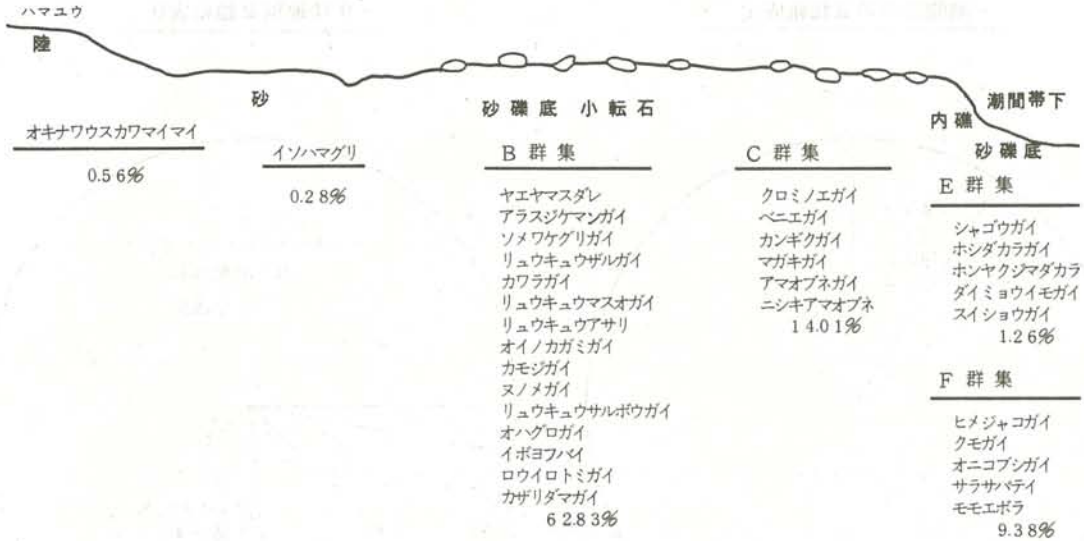 ハマユウ
陸
砂
砂礫底 小転石
内礁
潮間帯下
砂礫底
オキナワウスカワマイマイ
0.56%
イソハマグリ
0.28%
B 群集
ヤエヤマスダレ
アラスジケマンガイ
ソメワケグリガイ
リュウキュウザルガイ
カワラガイ
リュウキュウマスオガイ
リュウキュウアサリ
オイノカガミガイ
カモジガイ
ヌノメガイ
リュウキュウサルボウガイ
オハグロガイ
イボヨフバイ
ロウイロトミガイ
カザリダマガイ
62.83%
C 群集
クロミノエガイ
ベニエガイ
カンギクガイ
マガキガイ
アマオブネガイ
ニシキアマオブネ
14.01%
E 群集
シャゴウガイ
ホシダカラガイ
ホンヤクジマダカラ
ダイミョウイモガイ
スイショウガイ
1.26%
F 群集
ヒメジャコガイ
クモガイ
オニコブシガイ
サラサバテイ
モモエボラ
9.38%